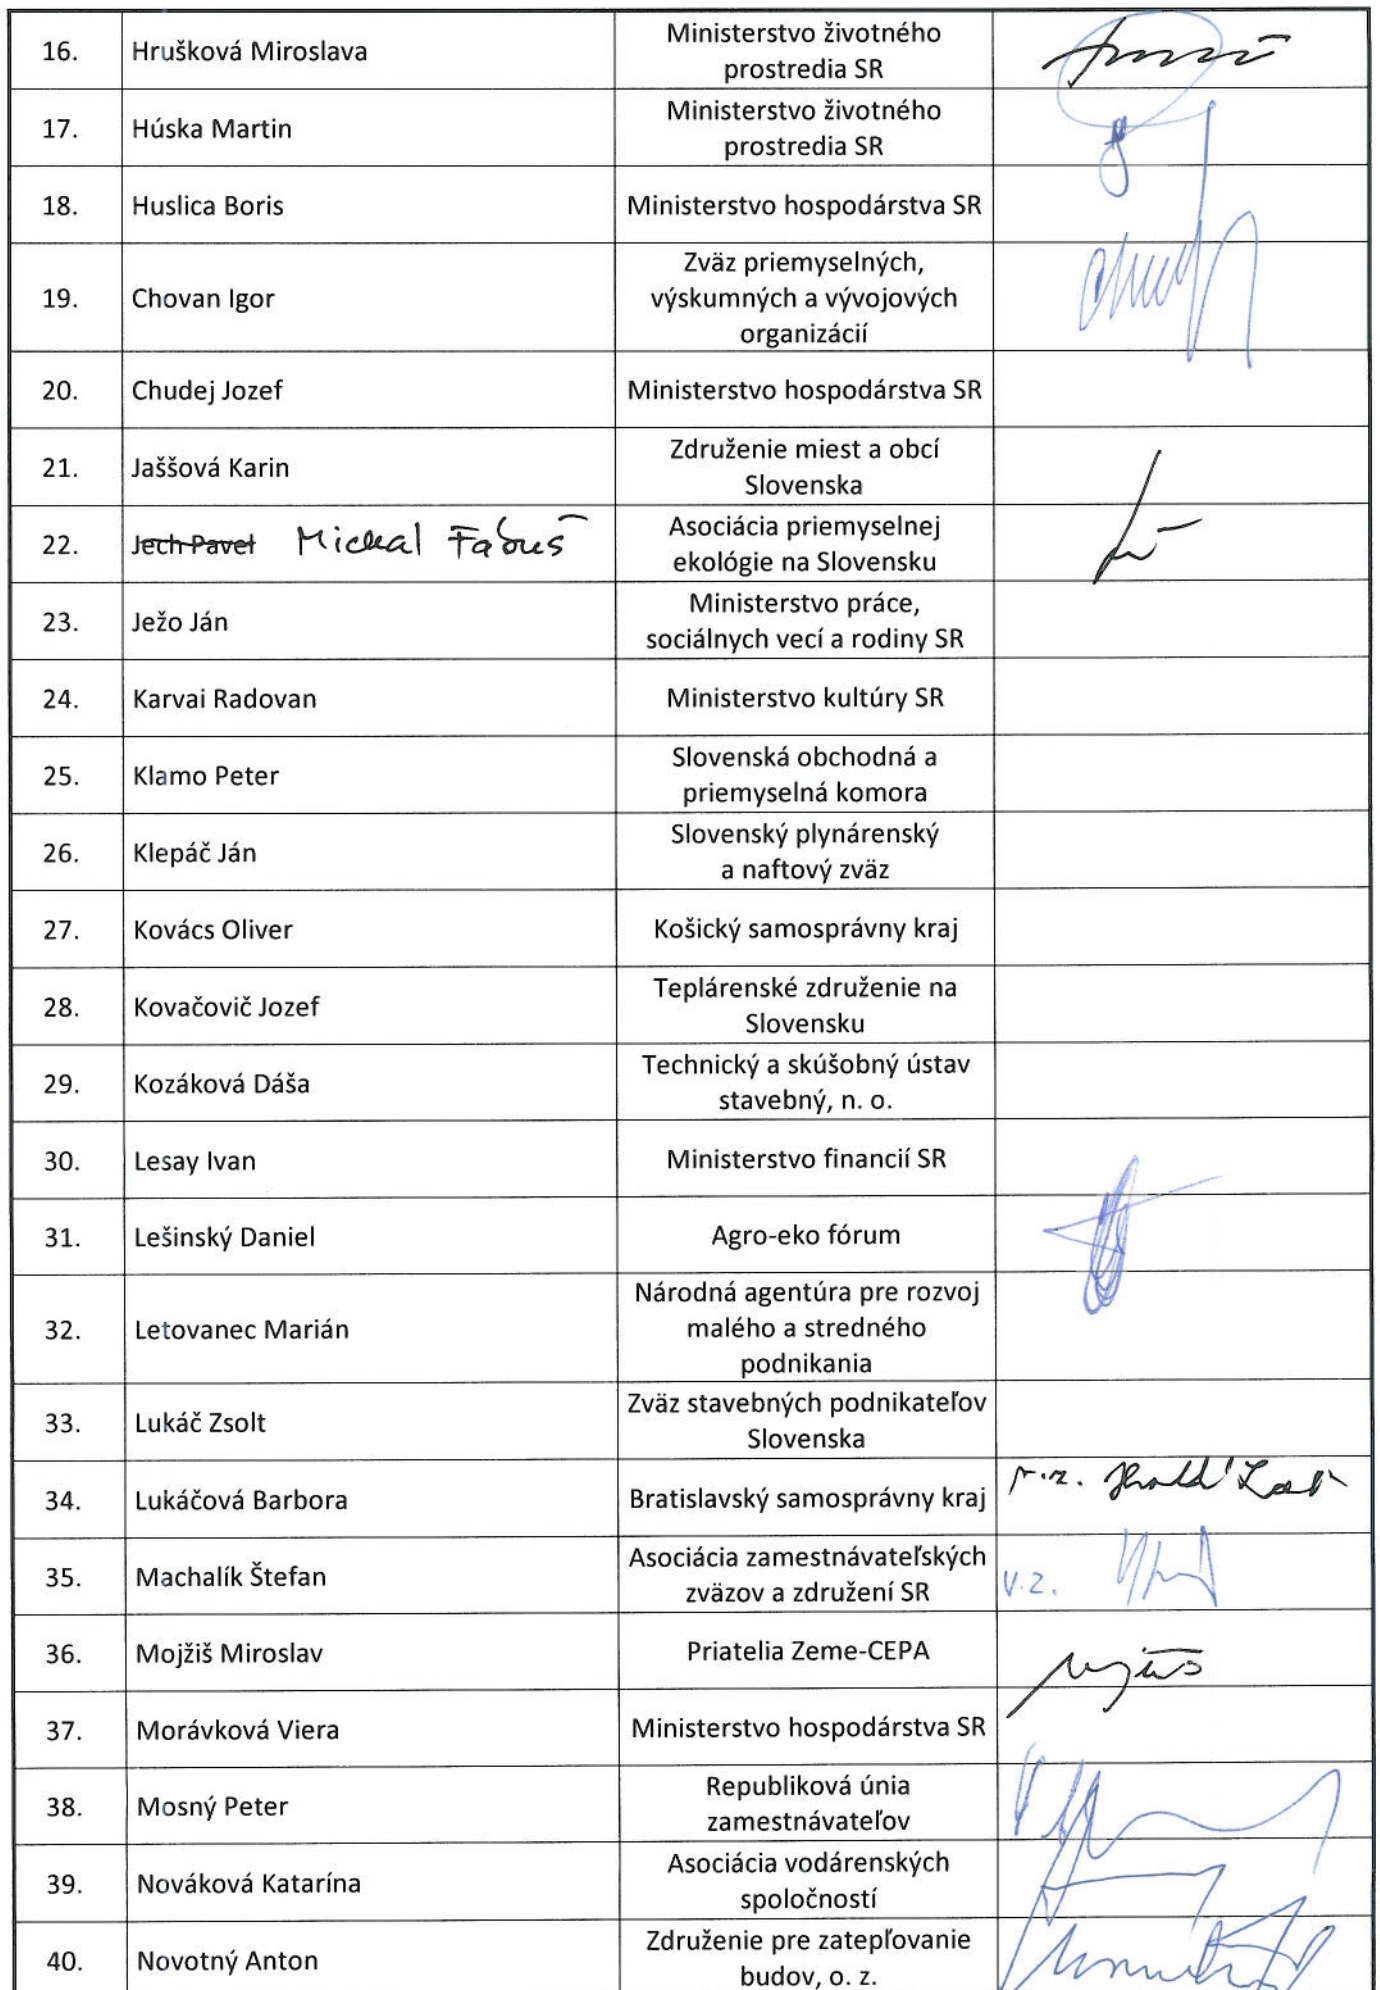 16.
Hrušková Miroslava
Ministerstvo životného
prostredia SR
17.
Húska Martin
Ministerstvo životného
prostredia SR
18.
Huslica Boris
Ministerstvo hospodárstva SR
19.
Chovan Igor
Zväz priemyselných,
výskumných a vývojových
organizácií
20.
Chudej Jozef
Ministerstvo hospodárstva SR
21.
Jaššová Karin
Združenie miest a obcí
Slovenska
22.
Jech Pavel Michal Fabuš
Asociácia priemyselnej
ekológie na Slovensku
23.
Ježo Ján
Ministerstvo práce,
sociálnych vecí a rodiny SR
24.
Karvai Radovan
Ministerstvo kultúry SR
25.
Klamo Peter
Slovenská obchodná a
priemyselná komora
26.
Klepáč Ján
Slovenský plynárenský
a naftový zväz
27.
Kovács Oliver
Košický samosprávny kraj
28.
Kovačovič Jozef
Teplárenské združenie na
Slovensku
29.
Kozáková Dáša
Technický a skúšobný ústav
stavebný, n. o.
30.
Lesay Ivan
Ministerstvo financií SR
31.
Lešinský Daniel
Agro-eko fórum
32.
Letovanec Marián
Národná agentúra pre rozvoj
malého a stredného
podnikania
33.
Lukáč Zsolt
Zväz stavebných podnikateľov
Slovenska
34.
Lukáčová Barbora
Bratislavský samosprávny kraj
35.
Machalík Štefan
Asociácia zamestnávateľských
zväzov a združení SR
v.z.
36.
Mojžiš Miroslav
Priatelia Zeme-CEPA
37.
Morávková Viera
Ministerstvo hospodárstva SR
38.
Mosný Peter
Republiková únia
zamestnávateľov
39.
Nováková Katarína
Asociácia vodárenských
spoločností
40.
Novotný Anton
Združenie pre zatepľovanie
budov, o. z.